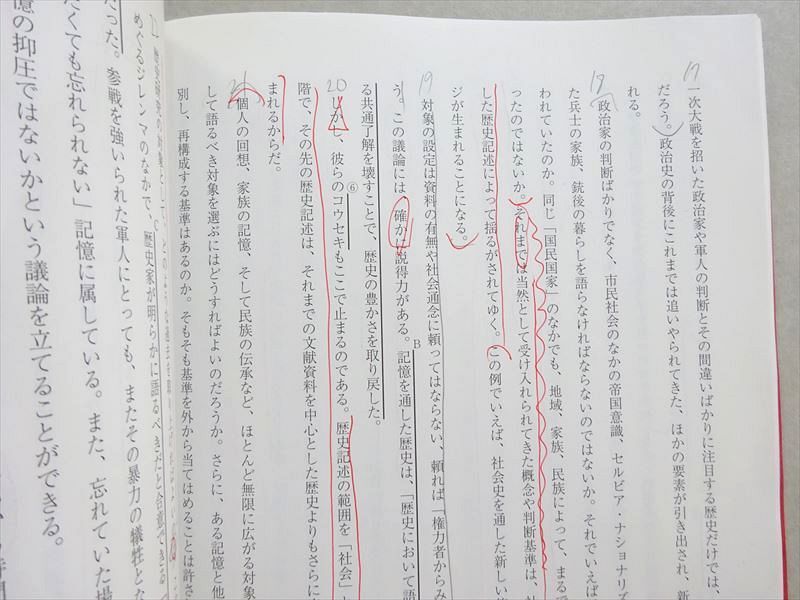 17
一次大戦を招いた政治家や軍人の判断とその間違いばかりに注目する歴史だけでは、
だろう。政治史の背後にこれまでは追いやられてきた、ほかの要素が引き出され、新
れる。
18
政治家の判断ばかりでなく、市民社会のなかの帝国意識、セルビア・ナショナリズ
た兵士の家族、銃後の暮らしを語らなければならないのではないか。それでいえば
われていたのか。同じ「国民国家」のなかでも、地域、家族、民族によって、まるで
ったのではないか。それまでは当然として受け入れられてきた概念や判断基準は、
した歴史記述によって揺るがされてゆく。この例でいえば、社会史を通した新しい
ジが生まれることになる。
19
対象の設定は資料の有無や社会通念に頼ってはならない、頼れば「権力者からみ
う。この議論には、確かに説得力がある。B記憶を通した歴史は、「歴史において語
る共通了解を壊すことで、歴史の豊かさを取り戻した。
20
しかし、彼らの⑥コウセキもここで止まるのである。歴史記述の範囲を「社会」
階で、その先の歴史記述は、それまでの文献資料を中心とした歴史よりもさらに
まれるからだ。
21
個人の回想、家族の記憶、そして民族の伝承など、ほとんど無限に広がる対象
して語るべき対象を選ぶにはどうすればよいのだろうか。さらに、ある記憶と他
別し、再構成する基準はあるのか。そもそも基準を外から当てはめることは許さ
めぐるジレンマのなかで、C歴史家が明らかに語るべきだと合意できる
だった。参戦を強いられた軍人にとっても、またその暴力の犠牲とな
たくても忘れられない」記憶に属している。また、忘れていた場
憶の抑圧ではないかという議論を立てることができる。